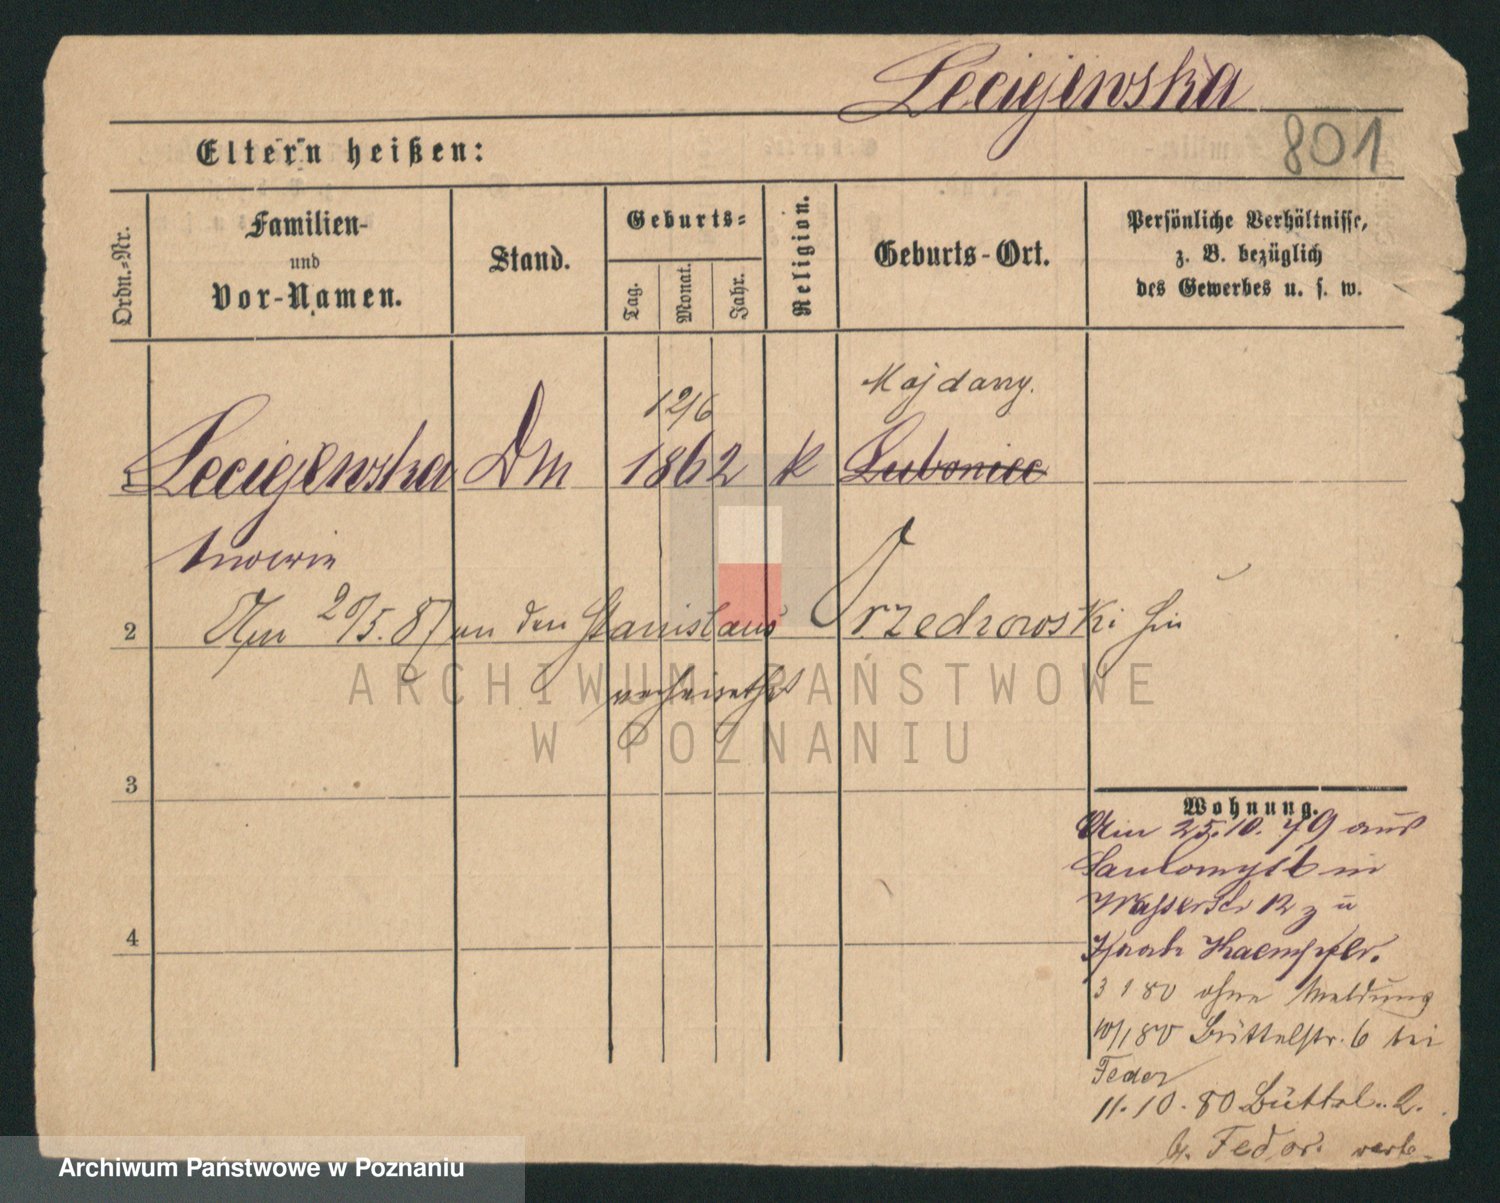 Leciejewska
801
Eltern heißen:
Ordn.-Nr.
Familien-
und
Vor-Namen.
Stand.
Geburts-
Tag.
Monat.
Jahr.
Religion.
Geburts-Ort.
Persönliche Verhältnisse,
z. B. bezüglich
des Gewerbes u. s. w.
Majdany.
12/6
1 Leciejewska Dm 1862 k Luboniec
2 Am 20/5.87 an den Stanislaus Trzedrowski hier
verheirathet
ARCHIWUM PAŃSTWOWE
W POZNANIU
3
Wohnung.
Am 25.10.79 aus
Santomysl in
Wasserstr 12 z u
Kaempfer.
4
3 1 80 ohne Meldung
10/1 80 Büttelstr. 6 bei
Feder
11.10.80 Büttel. 2.
b. Feder.
Archiwum Państwowe w Poznaniu